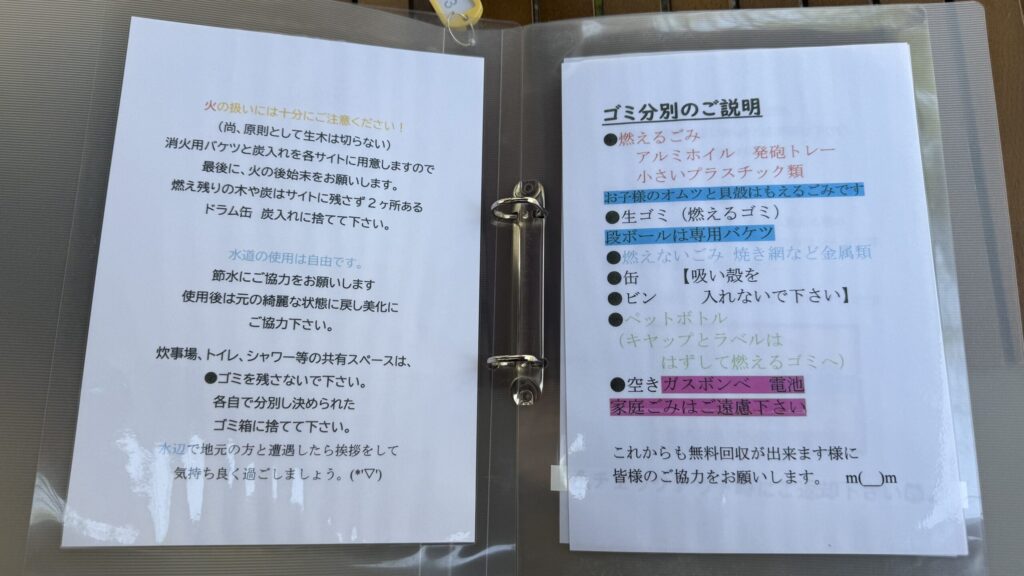 火の扱いには十分にご注意ください！
（尚、原則として生木は切らない）
消火用バケツと炭入れを各サイトに用意しますので
最後に、火の後始末をお願いします。
燃え残りの木や炭はサイトに残さず２ヶ所ある
ドラム缶 炭入れに捨てて下さい。
水道の使用は自由です。
節水にご協力をお願いします
使用後は元の綺麗な状態に戻し美化に
ご協力下さい。
炊事場、トイレ、シャワー等の共有スペースは、
●ゴミを残さないで下さい。
各自で分別し決められた
ゴミ箱に捨てて下さい。
水辺で地元の方と遭遇したら挨拶をして
気持ち良く過ごしましょう。(*'▽')
ゴミ分別のご説明
●燃えるごみ
アルミホイル 発砲トレー
小さいプラスチック類
お子様のオムツと貝殻はもえるごみです
●生ゴミ（燃えるゴミ）
段ボールは専用バケツ
●燃えないごみ 焼き網など金属類
●缶 【吸い殻を
●ビン 入れないで下さい】
●ペットボトル
（キャップとラベルは
はずして燃えるゴミへ）
●空きガスボンベ 電池
家庭ごみはご遠慮下さい
これからも無料回収が出来ます様に
皆様のご協力をお願いします。 m(__)m